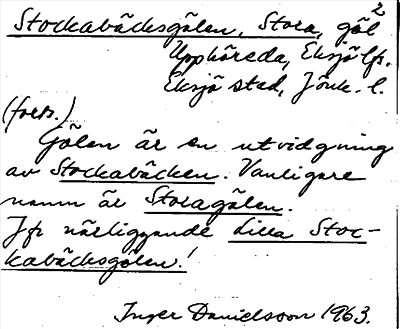 Stockabäcksgölen, Stora, göl 2
Upphöreda, Eksjö lfs.
Eksjö stad, Jönk. l.
(forts.)
Gölen är en utvidgning
av Stockabäcken. Vanligare
namn är Storagölen.
Jfr närliggande Lilla Stoc-
kabäcksgölen!
Inger Danielsson 1963.